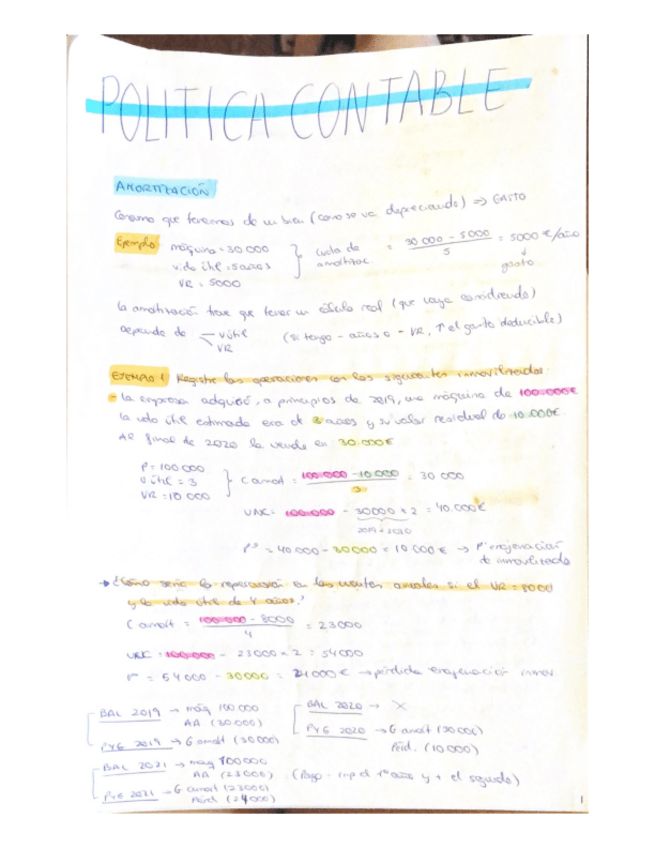 POLITICA CONTABLE
AMORTIZACIÓN
Consumo que tenemos de un bien (como se va depreciando) => GASTO
Ejemplo: máquina = 30 000
vida útil = 5 años
VR = 5000
} cuota de amortizac. = 30 000 - 5000 / 5 = 5000 €/año
↓
gasto
La amortización tiene que tener un cálculo real (que vaya considerando)
Depende de — v útil
VR
(si tengo - años o - VR, ↑ el gasto deducible)
EJEMPLO 1 Registre las operaciones con los siguientes inmovilizados:
- La empresa adquirió, a principios de 2019, una máquina de 100.000€
la vida útil estimada era de 3 años y su valor residual de 10.000€.
Al final de 2020 la vende en 30.000€
P = 100 000
V útil = 3
VR = 10 000
} C amort = 100 000 - 10 000 / 3 = 30 000
VNC = 100 000 - 30000 x 2 = 40.000€
2019 + 2020
= 40 000 - 30000 = 10 000 € → enajenación
de inmovilizado
→ ¿Cómo sería la repercusión en las cuentas anuales si el VR = 8000
y la vida útil de 4 años?
C amort = 100 000 - 8000 / 4 = 23000
VNC = 100 000 - 23000 x 2 = 54000
= 54000 - 30000 = 24000 € → pérdida enajenación inmov.
BAL 2019 → máq 100 000
AA (30.000)
PYG 2019 → G amort (30 000)
BAL 2020 → X
PYG 2020 → G amort (30 000)
Pérd. (10 000)
BAL 2021 → maq 100000
AA (23000)
(Pago - imp el 1º año y + el segundo)
PYG 2021 → G amort (23000)
Pérd (24000)
1